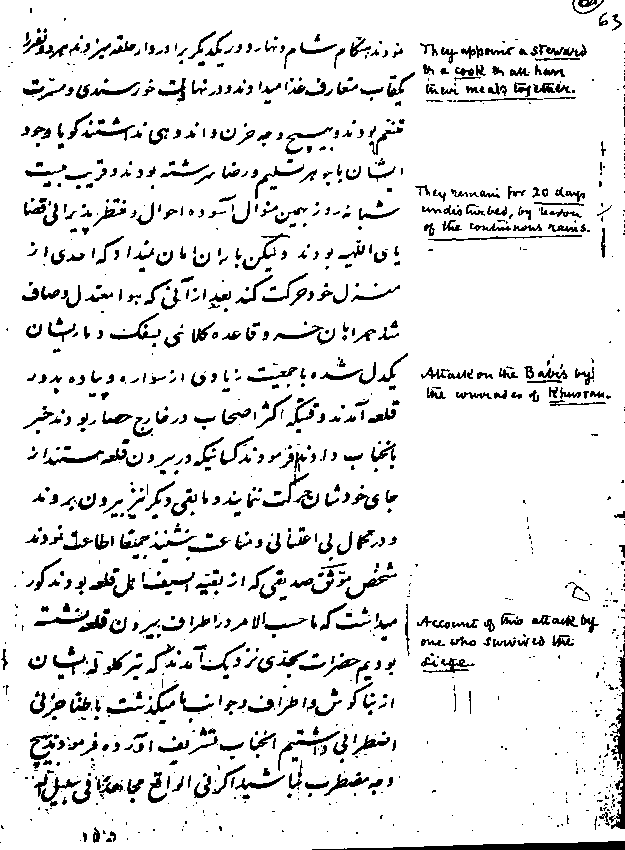 63
نمودند هنگام شام و نهار دور یکدیگر برادروار حلقه میزدند هر دو نفر را
یکقاب متعارف غذا میدادند و در نهایت خورسندی و مسرت
متنعم بودند و بهیچ وجه حزن و اندوهی نداشتند گویا وجود
ایشان با جوهر تسلیم و رضا سرشته بودند و قریب بیست
شبانه روز بهمین منوال آسوده احوال و منتظر پذیرائی قضا
یای اللهیه بودند ولیکن باران امان نمیداد که احدی از
منزل خود حرکت کند بعد از آنی که هوا معتدل و صاف
شد همراهان خسرو قاعده کلاشی بسفک دماء ایشان
یکدل شده با جمعیت زیادی از سواره و پیاده بدور
قلعه آمدند وقتیکه اکثر اصحاب در خارج حصار بودند خبر
بانجناب دادند فرمودند کسانیکه در بیرون قلعه هستند از
جای خودشان حرکت ننمایند و مابقی دیگر نیز بیرون بروند
و در کمال بی اعتنائی و مناعت بنشینند جمیعا اطاعت نمودند
شخص موثق صدیقی که از بقیة السیف اهل قلعه بودند کور
میداشت که ما حسب الامر در اطراف بیرون قلعه نشسته
بودیم حضرات بحدی نزدیک آمدند که تیر گلوله ایشان
از بناگوش و اطراف و جوانب ما میگذشت باطنا جزئی
اضطرابی داشتیم انجناب تشریف آورده فرمودند بهیچ
وجه مضطرب نباشید اگر فی الواقع مجاهد فی سبیل الله
They appoint a steward
& a cook & all have
their meals together.
They remain for 20 days
undisturbed, by reason
of the continuous rains.
Attack on the Bábís by
the comrades of Khusraw.
Account of this attack by
one who survived the
siege